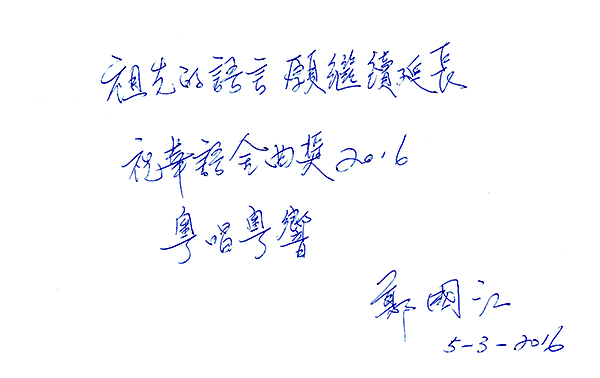 祖先的語言願繼續延長
祝華語金曲獎2016
粵唱粵響
鄭國江
5-3-2016